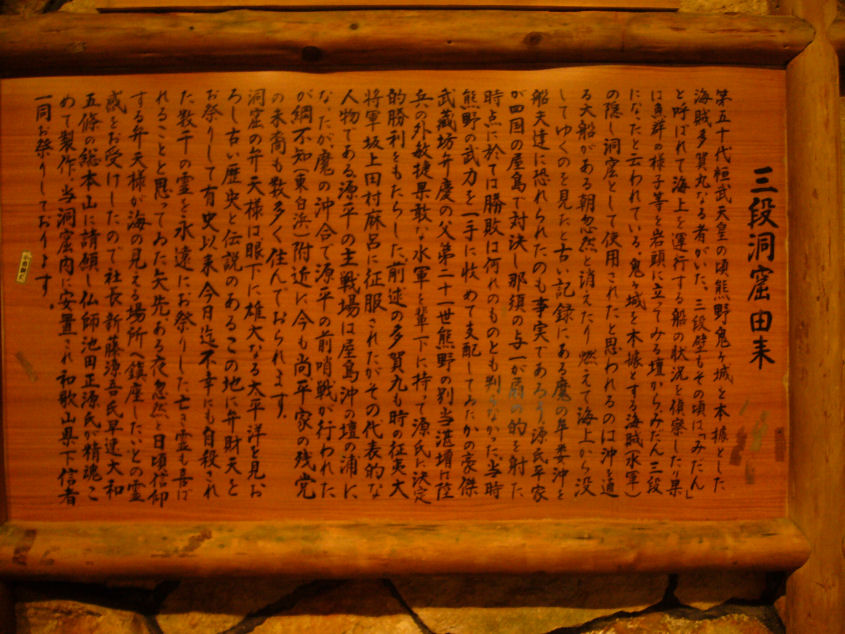 三段洞窟由来
第五十代桓武天皇の頃熊野鬼ヶ城を本據とした
海賊多賀丸なる者がいた、三段壁もその頃は「みだん」
と呼ばれて海上を運行する船の状況を偵察したり果
は魚群の様子等を岩頭に立ってみる壇から、みだん三段
になったと云われている鬼ヶ城を本據とする海賊(水軍)
の隠し洞窟として使用されたと思われるのは沖を通
る大船がある朝忽然と消えたり燃えて海上から没
してゆくのを見たと古い記録にある魔の年婁沖と
船夫達に恐れられたのも事実である 源氏平家
が四国の屋島で対決し那須の与一が扇の的を射た
時点に於ては勝敗は何れのものとも判らなかった、当時
熊野の武力を一手に收めて支配してゐたかの豪傑
武蔵坊弁慶の父第二十一世熊野の別当湛増は陸
兵の外敏捷果敢な水軍を輩下に持って源氏に決定
的勝利をもたらした、前述の多賀丸も時の征夷大
将軍坂上田村麻呂に征服されたがその代表的な
人物である源平の主戦場は屋島沖の壇の浦に
なったが、魔の沖合で源平の前哨戦が行われた
が綱不知(東白浜)附近に今も尚平家の残党
の末裔も数多く住んでおられます。
洞窟の弁天様は眼下に雄大なる太平洋を見お
ろし古い歴史と伝説のあるこの地に弁財天を
お祭りして有史以来今日迄不幸にも自殺され
た数千の霊を永遠にお祭りした亡き霊も喜ば
れることと思ってゐた矢先ある夜忽然と日頃信仰
する弁天様が海の見える場所へ鎮座したいとの霊
感をお受けしたので社長新藤源吾氏早速大和
五條の総本山に請願し仏師池田正源氏が精魂こ
めて製作、当洞窟内に安置され和歌山県下信者
一同お祭りしております。